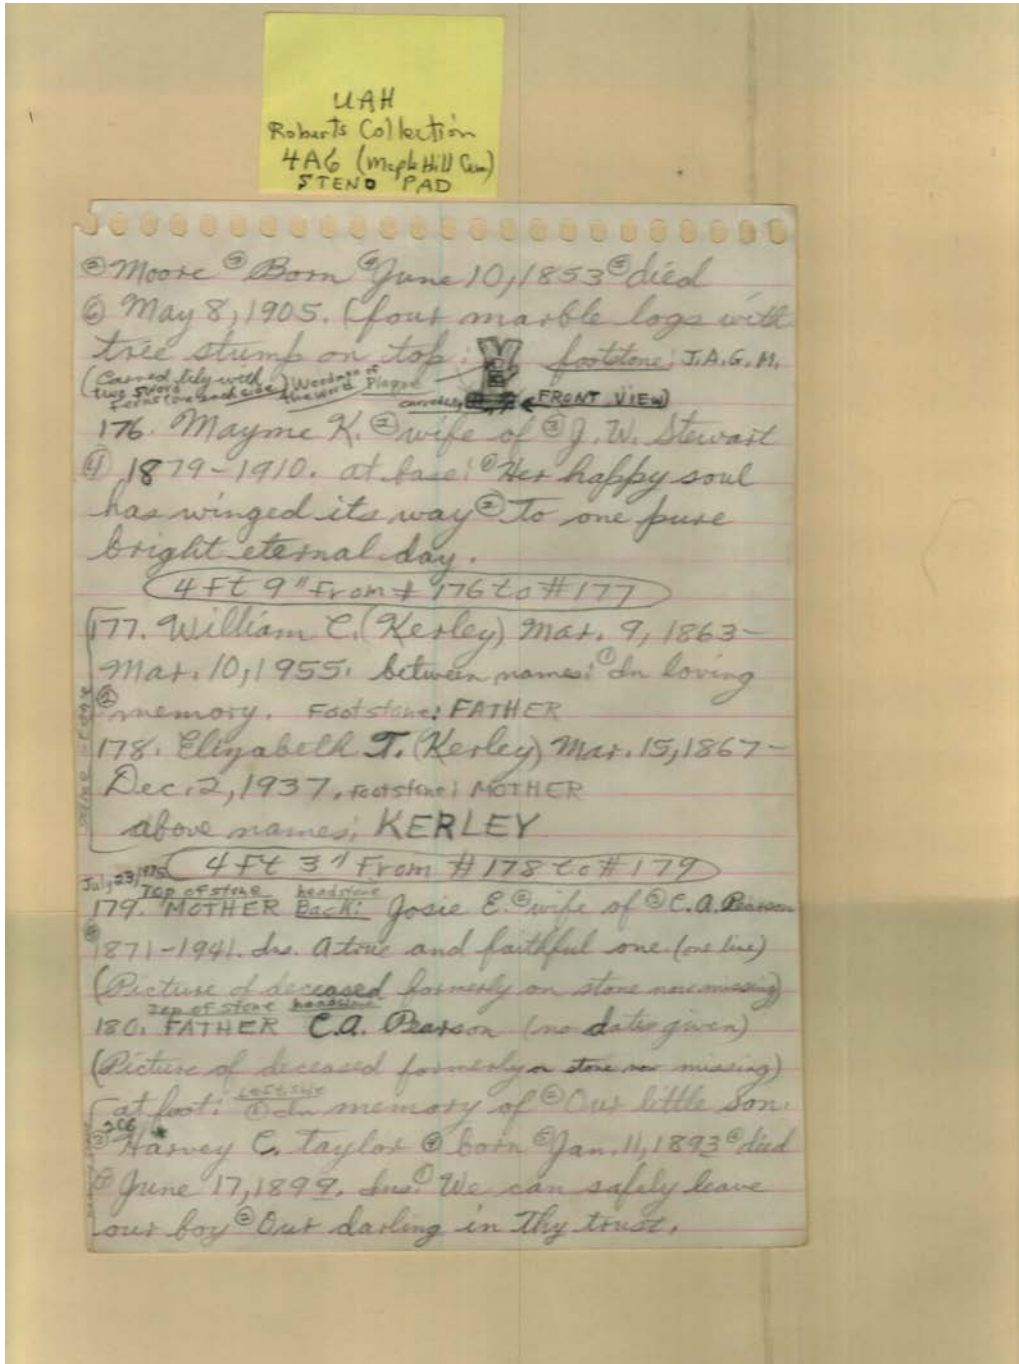 UAH
Roberts Collection
4A6 (Maple Hill Cem)
STENO PAD
② Moore ③ Born ④ June 10, 1853 ⑤ died
⑥ May 8, 1905. (four marble logs with
tree stump on top: footstone: J.A.G.M.
(Carved lily with
two sword
ferns (one each side)) Wording of
the word Plaque
← FRONT VIEW)
176. Mayme K. ② wife of ③ J. W. Stewart
④ 1879-1910. at base: ① Her happy soul
has winged its way ② To one pure
bright eternal day.
4 Ft 9" From # 176 to # 177
177. William C. (Kerley) Mar. 9, 1863-
Mar. 10, 1955. between names: ① In loving
② memory. Footstone: FATHER
178. Elizabeth T. (Kerley) Mar. 15, 1867-
Dec. 2, 1937. Footstone: MOTHER
above names: KERLEY
same stone
4 Ft 3" From # 178 to # 179
July 23, 1975
Top of stone headstone
179. MOTHER Back: Josie E. ② wife of ③ C.A. Pearson
④ 1871-1941. Ins. A true and faithful one. (one line)
(Picture of deceased formerly on stone now missing)
Top of stone headstone
180. FATHER C.A. Pearson (no dates given)
(Picture of deceased formerly on stone now missing)
at foot: Left side ① In memory of ② Our little son.
206
③ Harvey C. Taylor ④ born ⑤ Jan. 11, 1893 ⑥ died
⑦ June 17, 1899. Ins: ① We can safely leave
our boy ② Our darling in Thy trust.